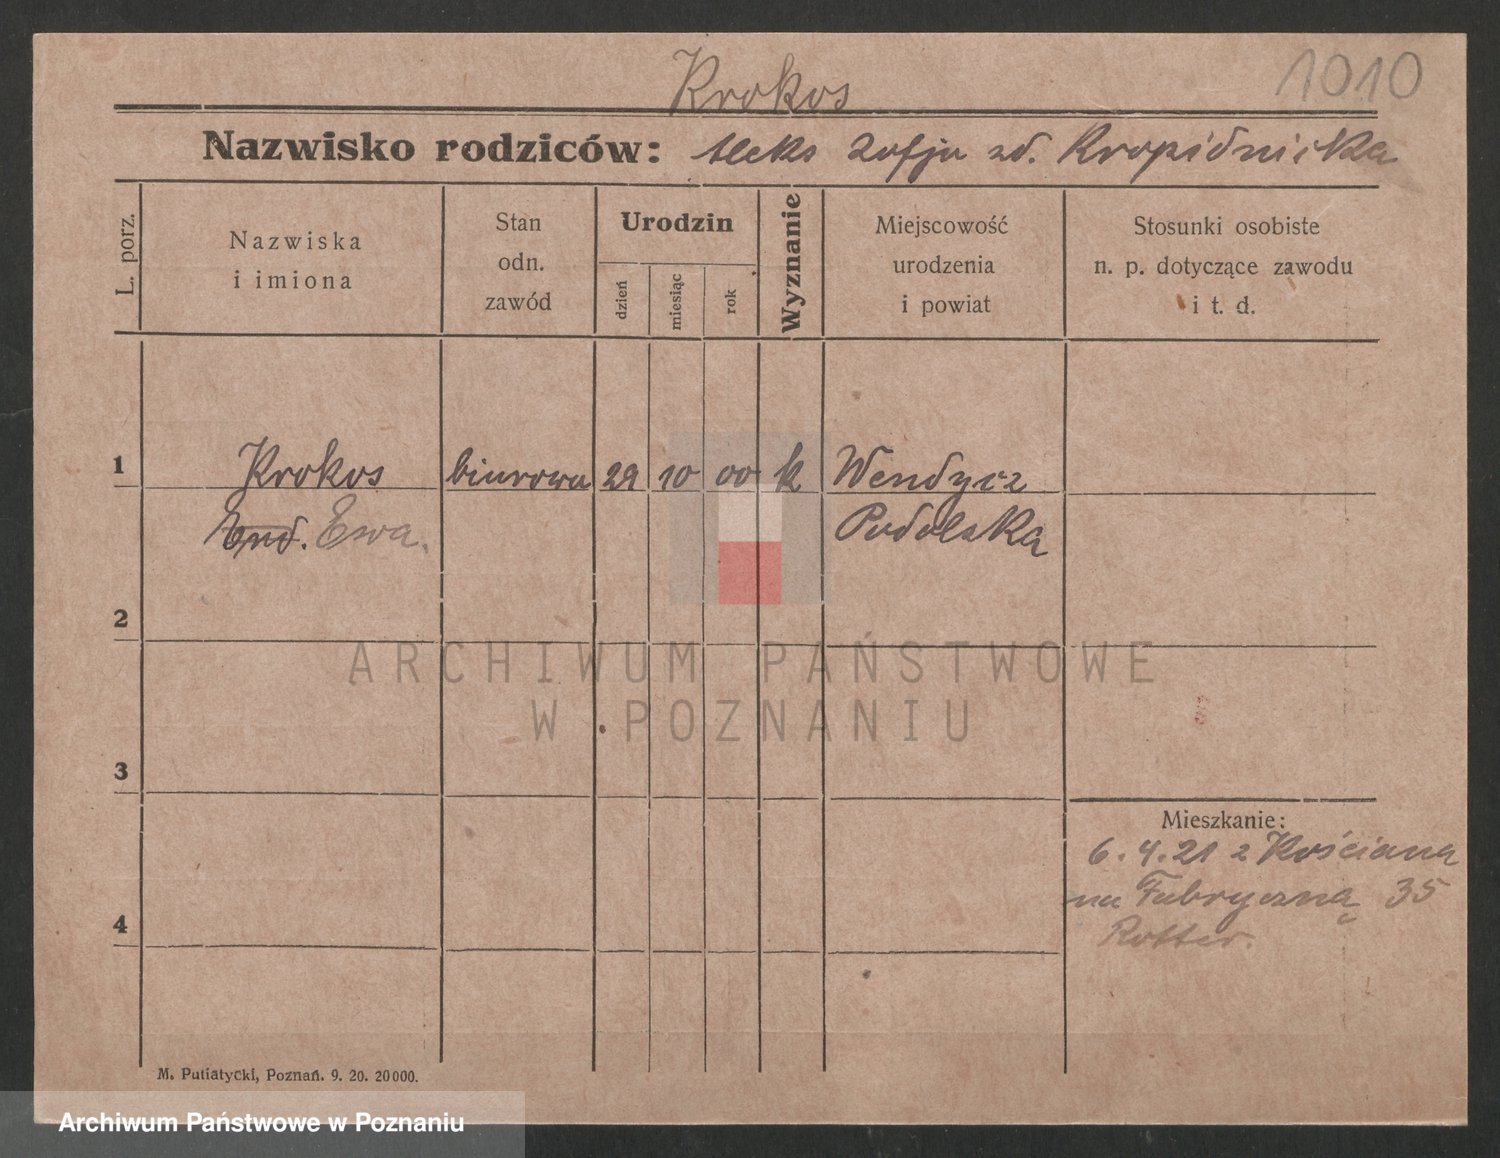 Krokos
1010
Nazwisko rodziców: Aleks Zofja zd. Kropidnicka
L. porz.
Nazwiska
i imiona
Stan
odn.
zawód
Urodzin
dzień
miesiąc
rok
Wyznanie
Miejscowość
urodzenia
i powiat
Stosunki osobiste
n. p. dotyczące zawodu
i t. d.
1
Krokos
biurowa
29
10
00
k
Wendycz
Ewa.
Podolska
2
3
4
Mieszkanie:
6.4.21 z Kościana
na Fabryczną 35
Rotter.
M. Putiatycki, Poznań. 9. 20. 20000.
ARCHIWUM PAŃSTWOWE
W POZNANIU
Archiwum Państwowe w Poznaniu